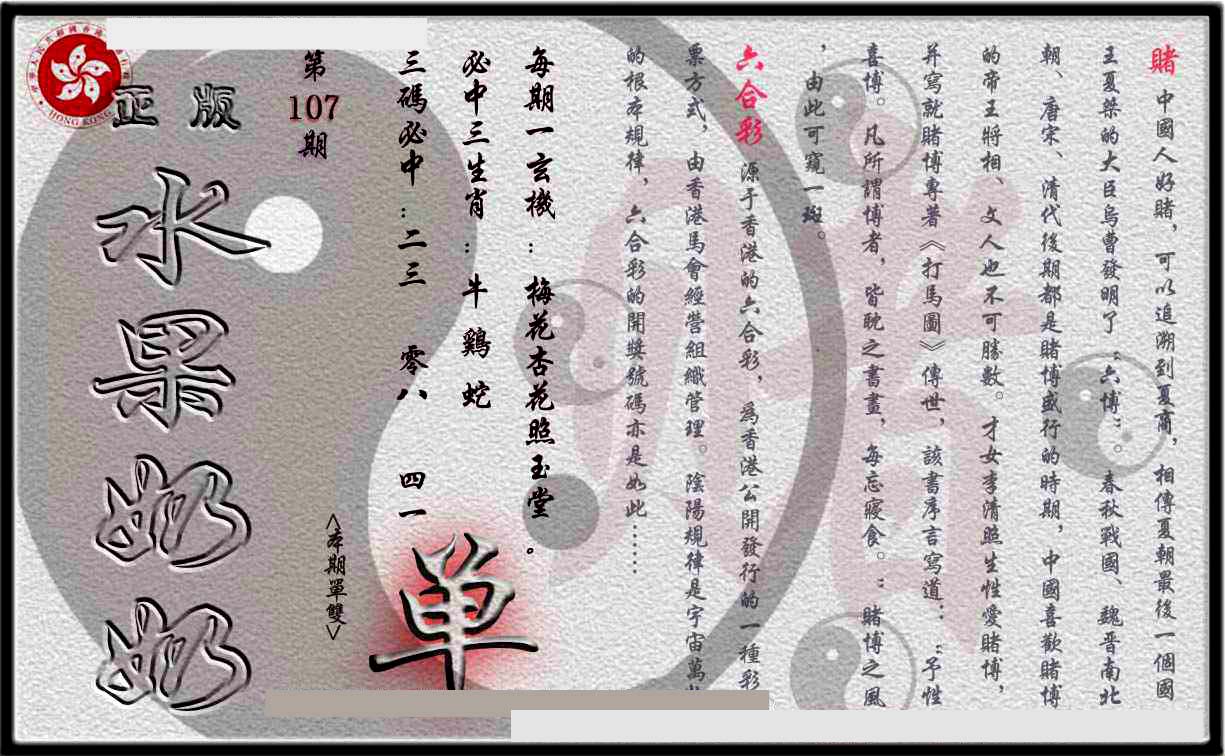 賭 中國人好賭，可以追溯到夏商，相傳夏朝最後一個國
王夏桀的大臣烏曹發明了“六博”。春秋戰國、魏晋南北
朝、唐宋、清代後期都是賭博盛行的時期，中國喜歡賭博
的帝王將相、文人也不可勝數。才女李清照生性愛賭博，
并寫就賭博專著《打馬圖》傳世，該書序言寫道：“予性
喜博。凡所謂博者，皆耽之書畫，每忘寢食。”賭博之風
，由此可窺一斑。
六合彩 源于香港的六合彩，爲香港公開發行的一種彩
票方式，由香港馬會經營組織管理。陰陽規律是宇宙萬
的根本規律，六合彩的開獎號碼亦是如此……
每期一玄機：梅花杏花照玉堂。
必中三生肖：牛 鷄 蛇
三碼必中：二三 零八 四一
<本期單雙>
单
第
107
期
正版
水果奶奶
HONG KONG